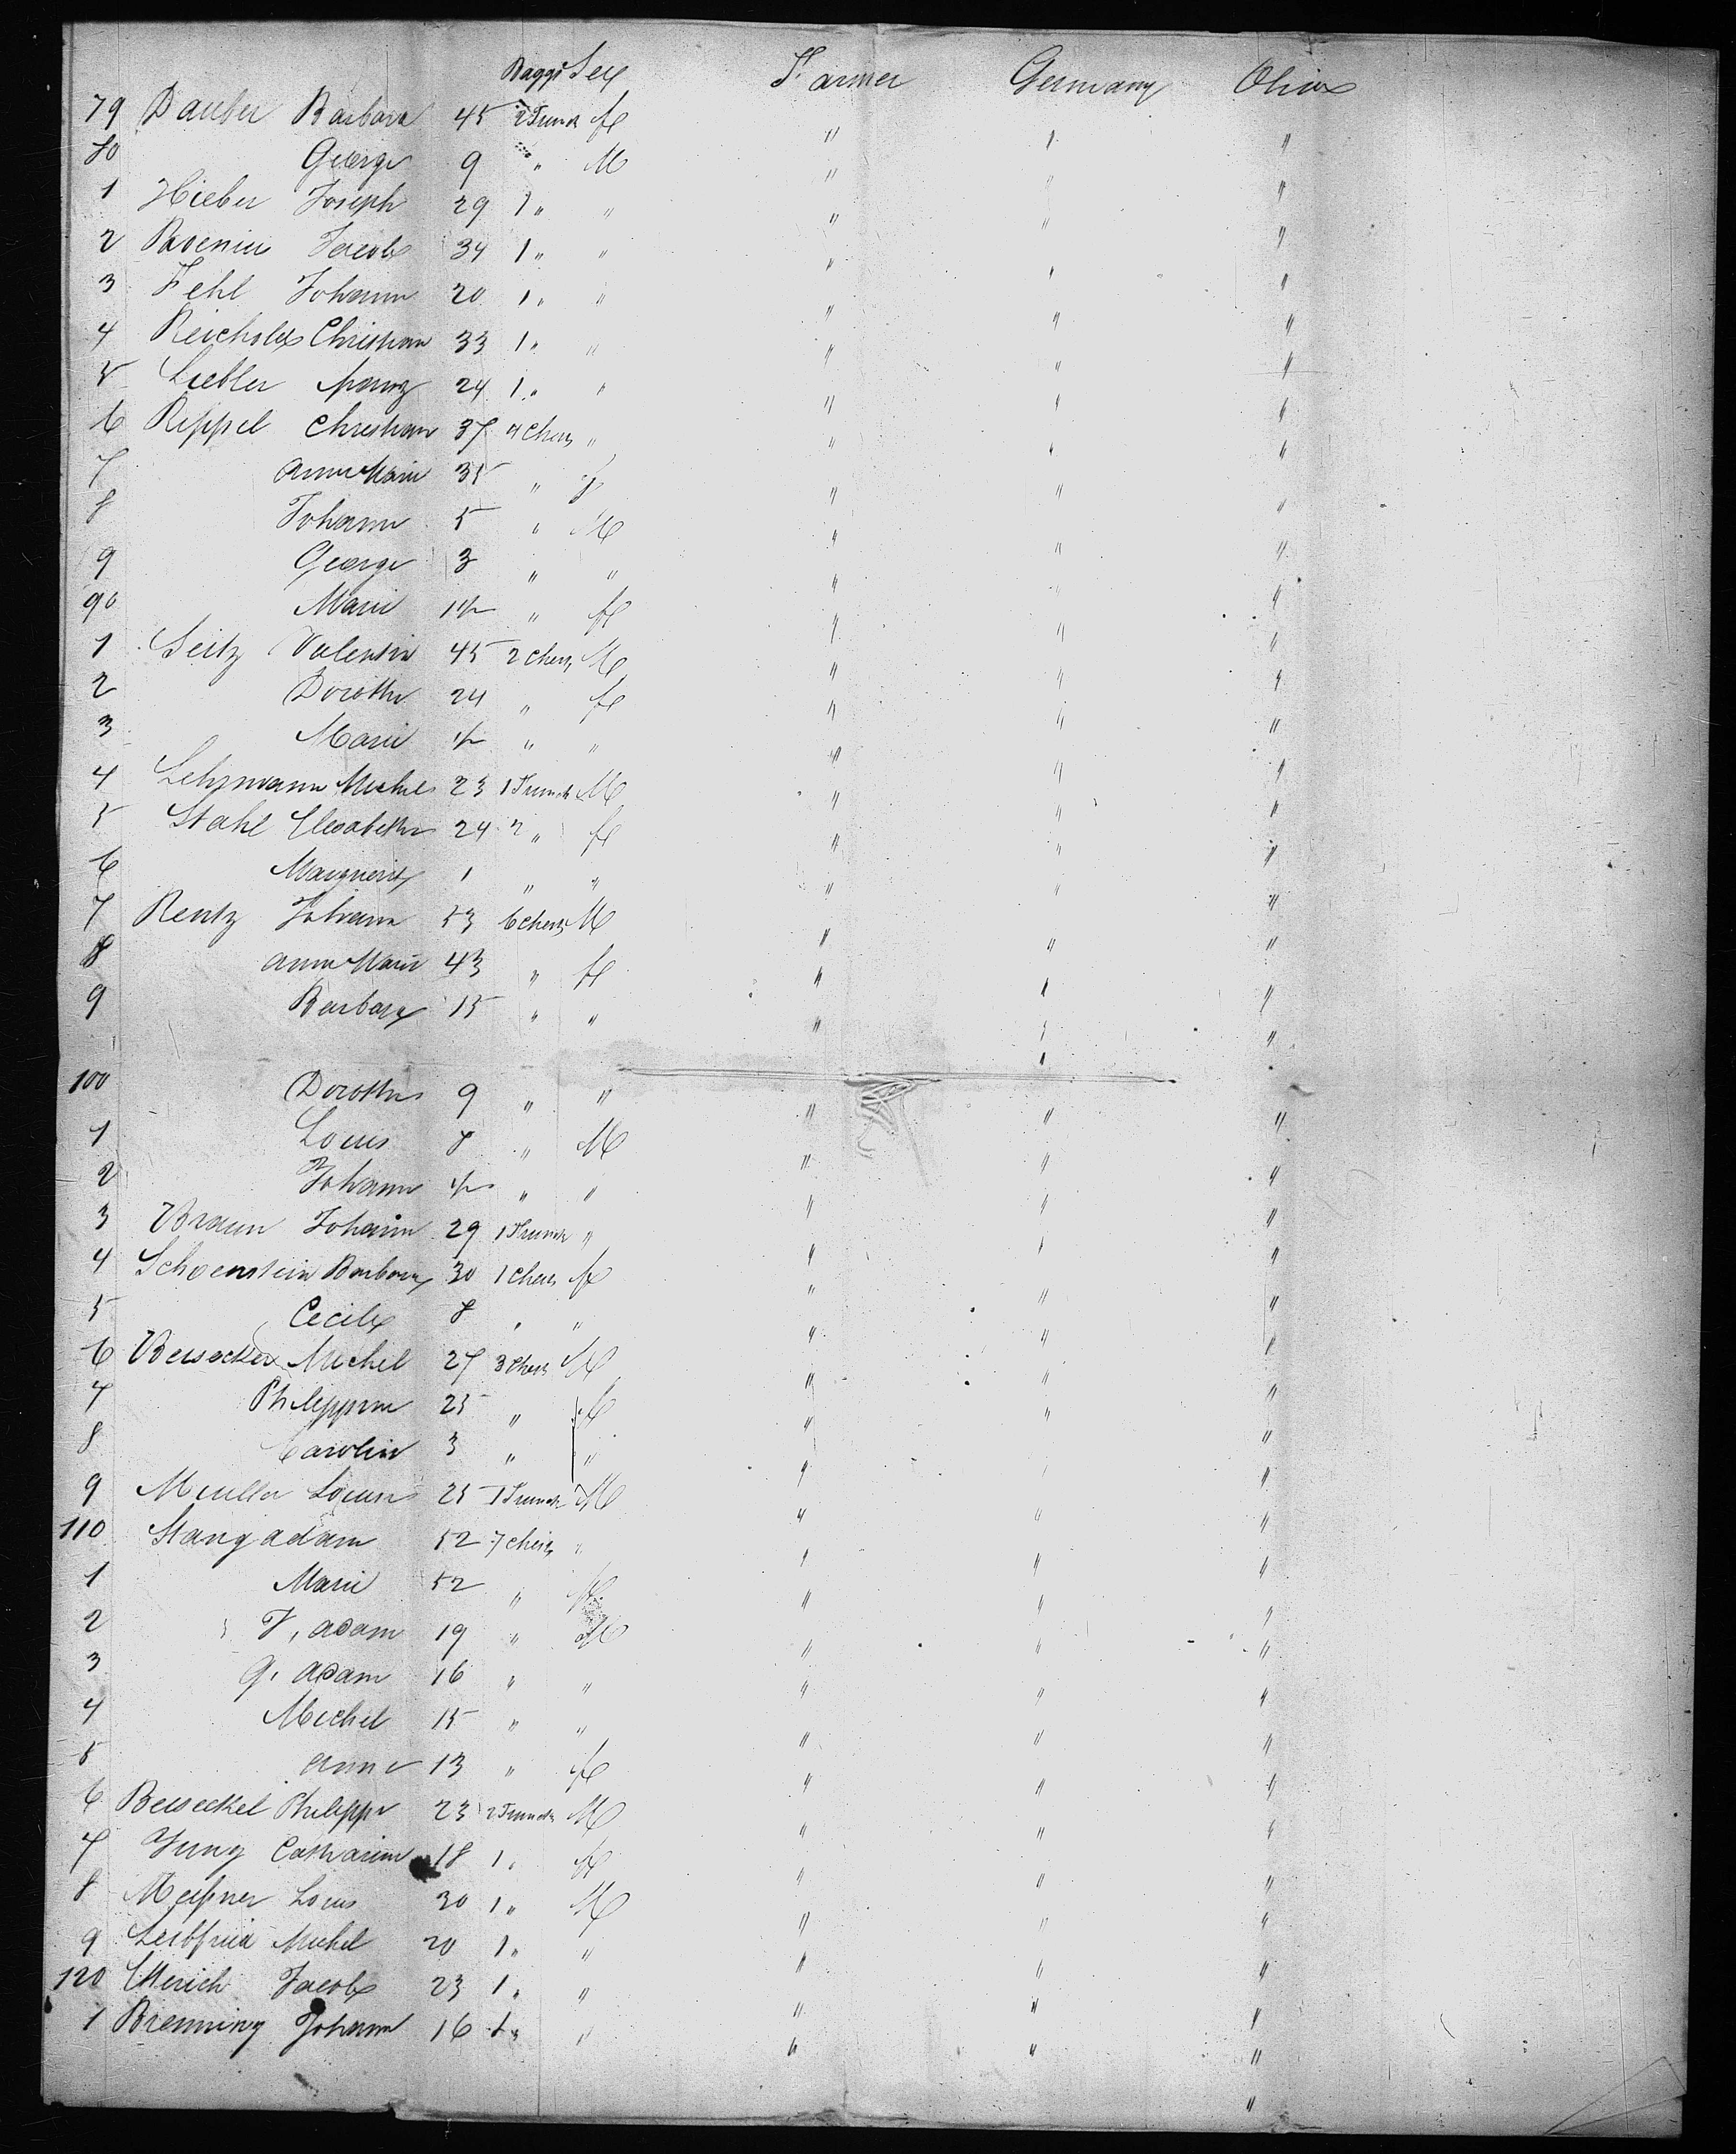 Baggs Sex Farmer Germany Ohio
79 Dauber Barbara 45 2 Trunck f " " "
80 George 9 " M " " "
1 Hieber Joseph 29 1 " " " " "
2 Jacob 34 1 " " " " "
3 Fehl Johann 20 1 " " " " "
4 Reichold Christian 33 1 " " " " "
5 Liebler Franz 24 1 " " " " "
6 Rippel Christian 37 4 Chests " " " "
7 Anna Marie 35 " f " " "
8 Johann 5 " M " " "
9 George 3 " " " " "
90 Marie 1½ " f " " "
1 Seitz Valentin 45 2 Chests M " " "
2 Dorothe 24 " f " " "
3 Marie ½ " " " " "
4 Lehzmann Michel 23 1 Trunck M " " "
5 Stahl Elesabethe 24 2 " f " " "
6 Marguerite 1 " " " " "
7 Rentz Johann 53 6 Chests M " " "
8 Anna Marie 43 " f " " "
9 Barbara 15 " " " " "
100 Dorothe 9 " " " " "
1 Louis 8 " M " " "
2 Johann ½ " " " " "
3 Braun Johann 29 1 Trunck " " " "
4 Schoenstein Barbara 30 1 Chests f " " "
5 Cecile 8 " " " " "
6 Beisecker Michel 27 3 Chests M " " "
7 Philippine 25 " f " " "
8 Carolin 3 " " " " "
9 Mueller Louis 25 1 Trunck M " " "
110 Stang Adam 52 7 Chests " " " "
1 Marie 52 " f " " "
2 J. Adam 19 " M " " "
3 G. Adam 16 " " " " "
4 Michel 15 " " " " "
5 Anna 13 " f " " "
6 Beiseckel Philippe 23 2 Trunck M " " "
7 Jung Catharine 18 1 " f " " "
8 Meißner Louis 30 1 " M " " "
9 Leibfried Michel 20 1 " " " " "
120 Ulerich Jacob 23 1 " " " " "
1 Brenning Johann 16 1 " " " " "